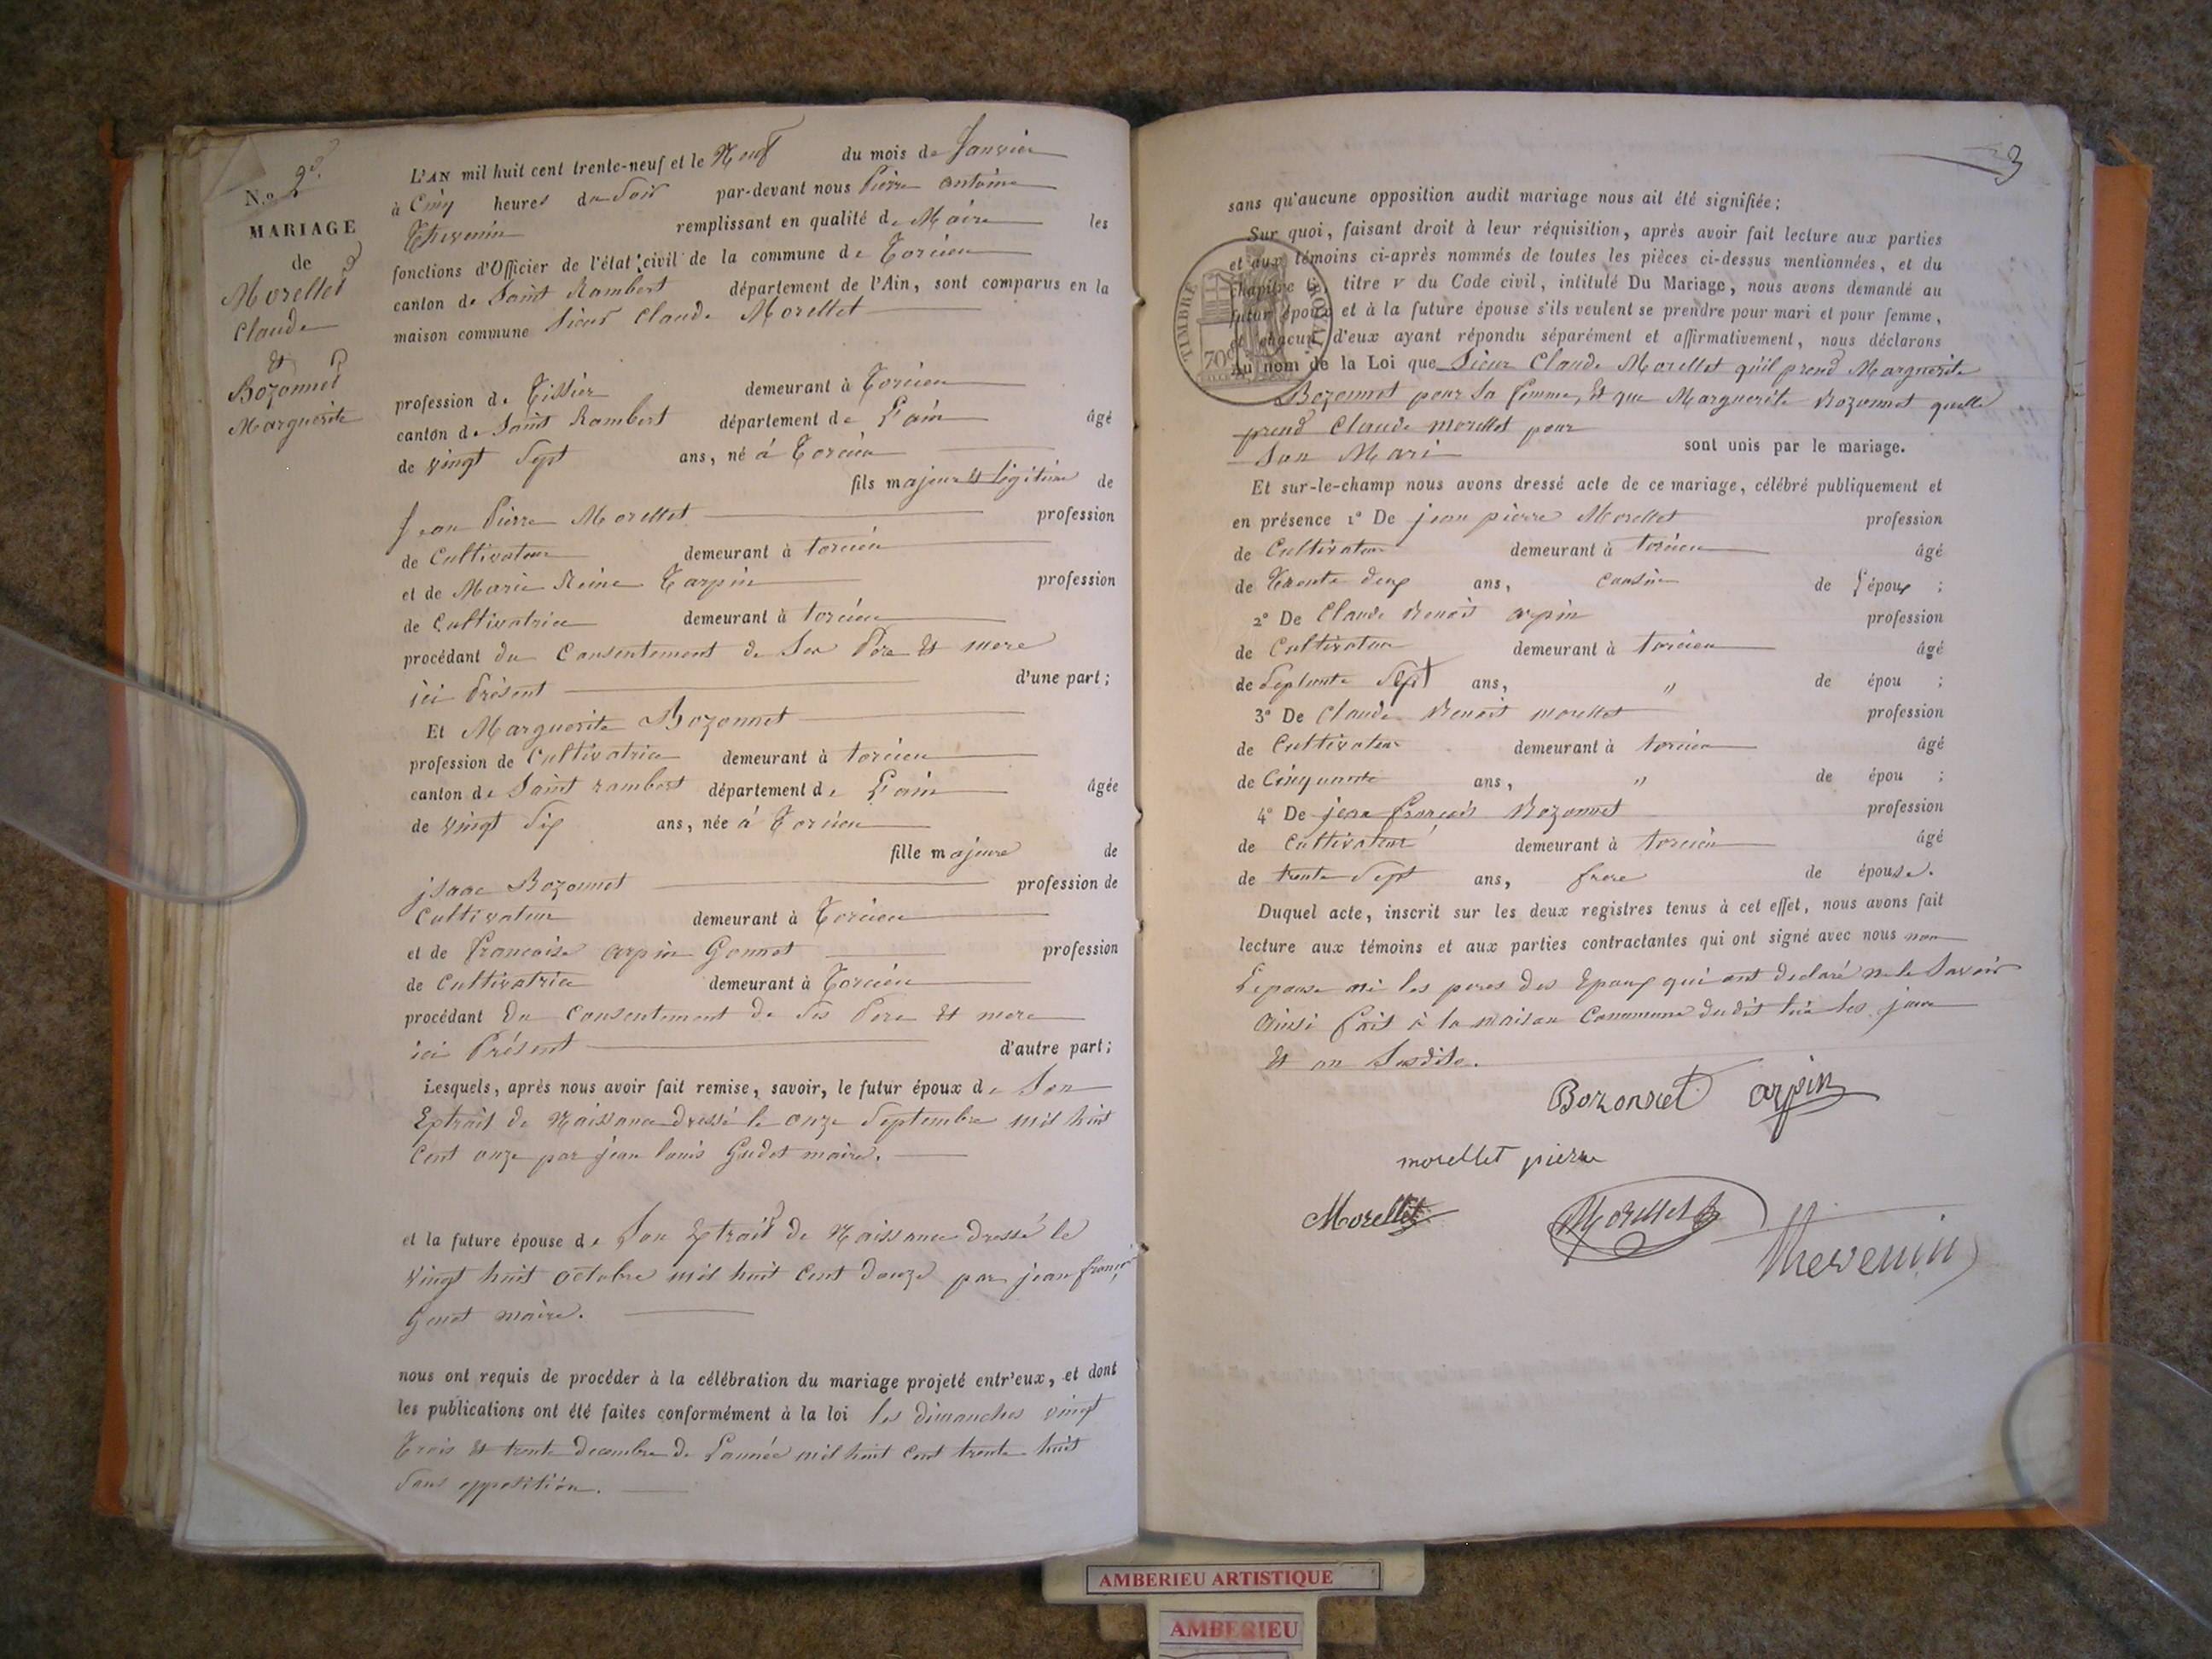 N.o 2d.
MARIAGE
de
Morellet
Claude
et
Bozonnet
Marguerite
L'AN mil huit cent trente-neuf et le Neuf du mois de Janvier
à Cinq heures du Soir par-devant nous Pierre antoine
Thevenin remplissant en qualité de Maire les
fonctions d'Officier de l'état civil de la commune de Torcieu
canton de Saint Rambert département de l'Ain, sont comparus en la
maison commune Sieur Claude Morellet
profession de Tissier demeurant à Torcieu
canton de Saint Rambert département de L'ain âgé
de vingt Sept ans, né à Torcieu
fils majeur et légitime de
Jean Pierre Morellet profession
de Cultivateur demeurant à torcieu
et de Marie Reine Tarpin profession
de Cultivatrice demeurant à torcieu
procédant du Consentement de Ses Père et mere
ici Présent d'une part;
Et Marguerite Bozonnet
profession de Cultivatrice demeurant à torcieu
canton de Saint rambert département de L'ain âgée
de vingt Six ans, née à Torcieu
fille majeure de
jsaac Bozonnet profession de
Cultivateur demeurant à Torcieu
et de francoise arpin Gonnet profession
de Cultivatrice demeurant à Torcieu
procédant Du Consentement de Ses Pere et mere
ici Présent d'autre part;
Lesquels, après nous avoir fait remise, savoir, le futur époux de Son
Extrait de Naissance dressé le onze Septembre mil huit
Cent onze par jean louis Gudet maire.
et la future épouse de Son Extrait de Naissance dressé le
vingt huit octobre mil huit Cent douze par jean françois
Genet maire.
nous ont requis de procéder à la célébration du mariage projeté entr'eux, et dont
les publications ont été faites conformément à la loi les dimanches vingt
Trois et trente decembre de L'année mil huit Cent trente huit
Sans opposition.
3
sans qu'aucune opposition audit mariage nous ait été signifiée;
Sur quoi, faisant droit à leur réquisition, après avoir fait lecture aux parties
et aux témoins ci-après nommés de toutes les pièces ci-dessus mentionnées, et du
chapitre 6 titre V du Code civil, intitulé Du Mariage, nous avons demandé au
futur époux et à la future épouse s'ils veulent se prendre pour mari et pour femme,
et chacun d'eux ayant répondu séparément et affirmativement, nous déclarons
TIMBRE ROYAL
70c
Au nom de la Loi que Sieur Claude Morellet qu'il prend Marguerite
Bozonnet pour Sa femme, et que Marguerite Bozonnet quelle
prend Claude morellet pour
Son Mari sont unis par le mariage.
Et sur-le-champ nous avons dressé acte de ce mariage, célébré publiquement et
en présence 1° De jean pierre Morellet profession
de Cultivateur demeurant à torcieu âgé
de Trente deux ans, Cousin de L'époux ;
2° De Claude Benoit arpin profession
de Cultivateur demeurant à torcieu âgé
de Septante Sept ans, " de épou ;
3° De Claude Benoit morellet profession
de Cultivateur demeurant à torcieu âgé
de Cinquante ans, " de épou ;
4° De jean françois Bozonnet profession
de Cultivateur demeurant à torcieu âgé
de trente Sept ans, frere de épouse.
Duquel acte, inscrit sur les deux registres tenus à cet effet, nous avons fait
lecture aux témoins et aux parties contractantes qui ont signé avec nous non
L'epouse ni les peres des Epoux qui ont declaré ne le Savoir
Ainsi fait à la maison Commune dudit lieu les jour
et an Susdits.
Bozonnet arpin
morellet pierre
Morellet Morellet Thevenin
AMBERIEU ARTISTIQUE
AMBERIEU